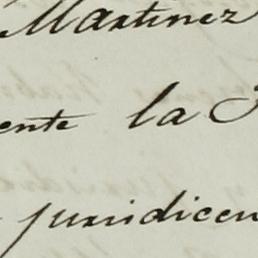 Martinez
ente la
juridicen